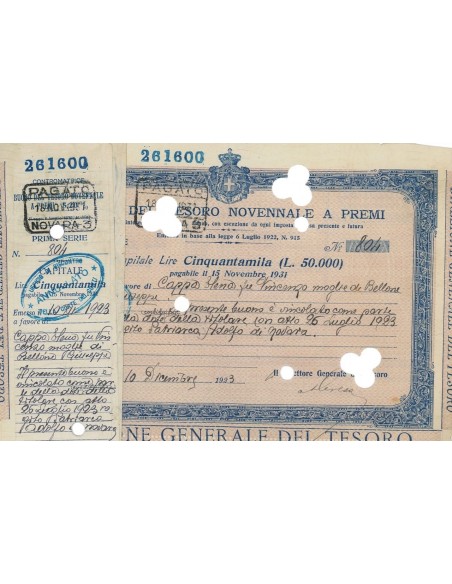 261600
CONTROMATRICE
BUONO DEL TESORO NOVENNALE
PAGATO
NOVARA-3
PRIMA SERIE
N. 804
CAPITALE
Cinquantamila
pagabile il 15 Novembre 1931
Emesso il 10 1923
a favore di
Cappa Elena fu Vin
cenzo moglie di
Bellone Giuseppe
Il presente buono è
vincolato come par
te della dote della
titolare con atto
26 luglio 1923 ro
gito Patriarca
Adolfo di Novara
261600
PAGATO
DEL TESORO NOVENNALE A PREMI
con esenzione da ogni imposta presente e futura
in base alla legge 6 Luglio 1922, N. 943
Nº 804
Capitale Lire Cinquantamila (L. 50.000)
pagabile il 15 Novembre 1931
a favore di Cappa Elena fu Vincenzo moglie di Bellone
Giuseppe Il presente buono è vincolato come parte
della dote della titolare con atto 26 luglio 1923
rogito Patriarca Adolfo di Novara
10 Dicembre 1923
Il Direttore Generale del Tesoro
NE GENERALE DEL TESORO